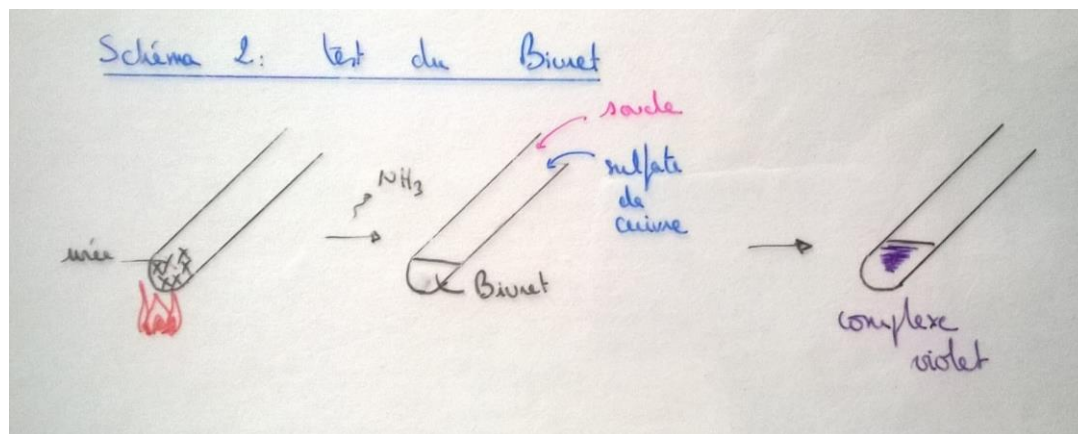 Schéma 2: test du Biuret
soude
NH3
sulfate
de
cuivre
urée
Biuret
complexe
violet